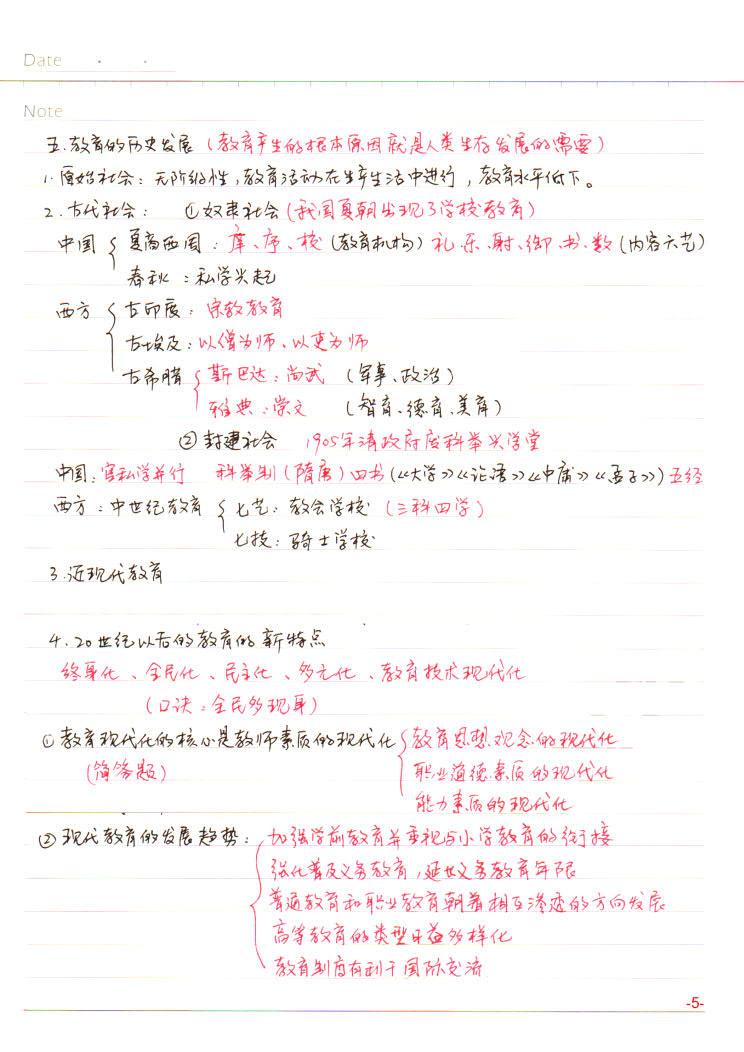 Date . .
Note
五.教育的历史发展(教育产生的根本原因就是人类生存发展的需要)
1.原始社会：无阶级性,教育活动在生产生活中进行，教育水平低下。
2.古代社会： ①奴隶社会(我国夏朝出现了学校教育)
中国 { 夏商西周：庠、序、校(教育机构) 礼.乐.射.御.书.数(内容六艺)
春秋：私学兴起
西方 { 古印度：宗教教育
古埃及：以僧为师、以吏为师
古希腊 { 斯巴达：尚武 (军事、政治)
雅典：崇文 (智育、德育、美育)
②封建社会 1905年清政府废科举兴学堂
中国：官私学并行 科举制(隋唐)四书(《大学》《论语》《中庸》《孟子》)五经
西方：中世纪教育 { 七艺：教会学校 (三科四学)
七技：骑士学校
3.近现代教育
4.20世纪以后的教育的新特点
终身化、全民化、民主化、多元化、教育技术现代化
(口诀：全民多现身)
①教育现代化的核心是教师素质的现代化 { 教育思想观念的现代化
(简答题) 职业道德素质的现代化
能力素质的现代化
②现代教育的发展趋势： { 加强学前教育并重视与小学教育的衔接
强化普及义务教育,延长义务教育年限
普通教育和职业教育朝着相互渗透的方向发展
高等教育的类型日益多样化
教育制度有利于国际交流
-5-